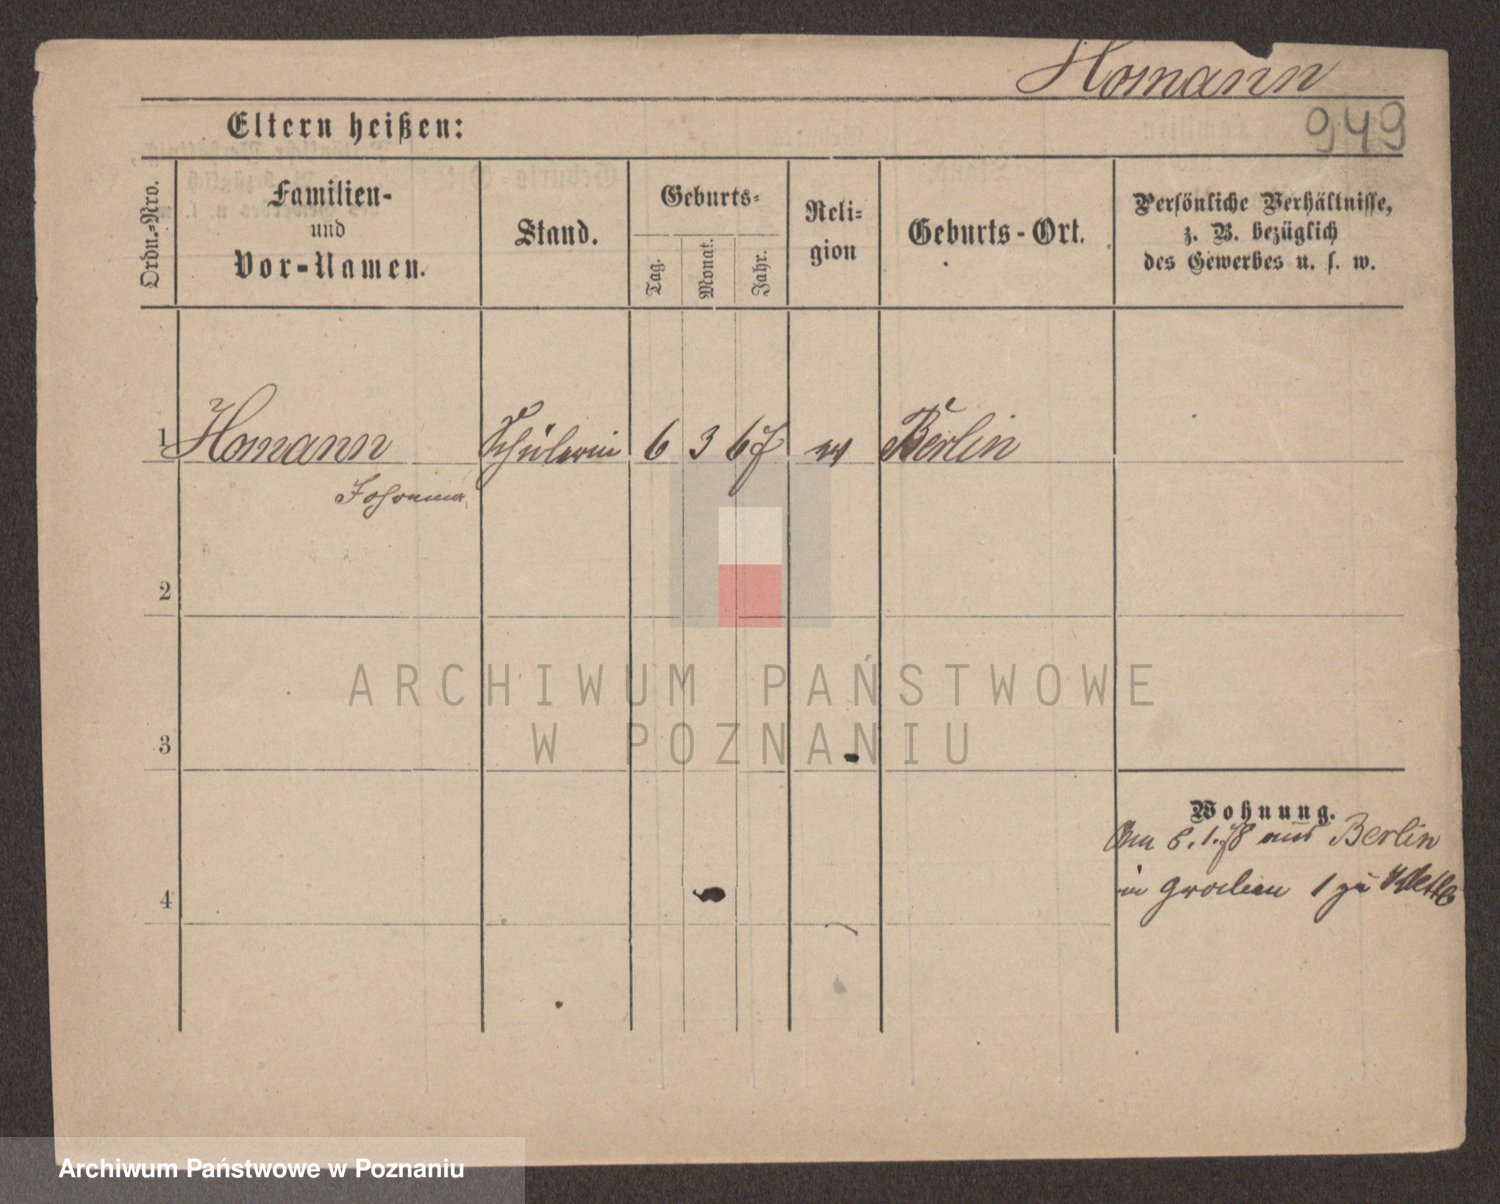 Homann
949
Eltern heißen:
Ordn.-Nro.
Familien-
und
Vor-Namen.
Stand.
Geburts-
Tag.
Monat.
Jahr.
Reli-
gion
Geburts-Ort.
Persönliche Verhältnisse,
z. B. bezüglich
des Gewerbes u. s. w.
1 Homann Schülerin 6 3 67 ev Berlin
Johanna
2
3
4
Wohnung.
Am 6.1.78 aus Berlin
in Graben 1 zu
ARCHIWUM PAŃSTWOWE
W POZNANIU
Archiwum Państwowe w Poznaniu